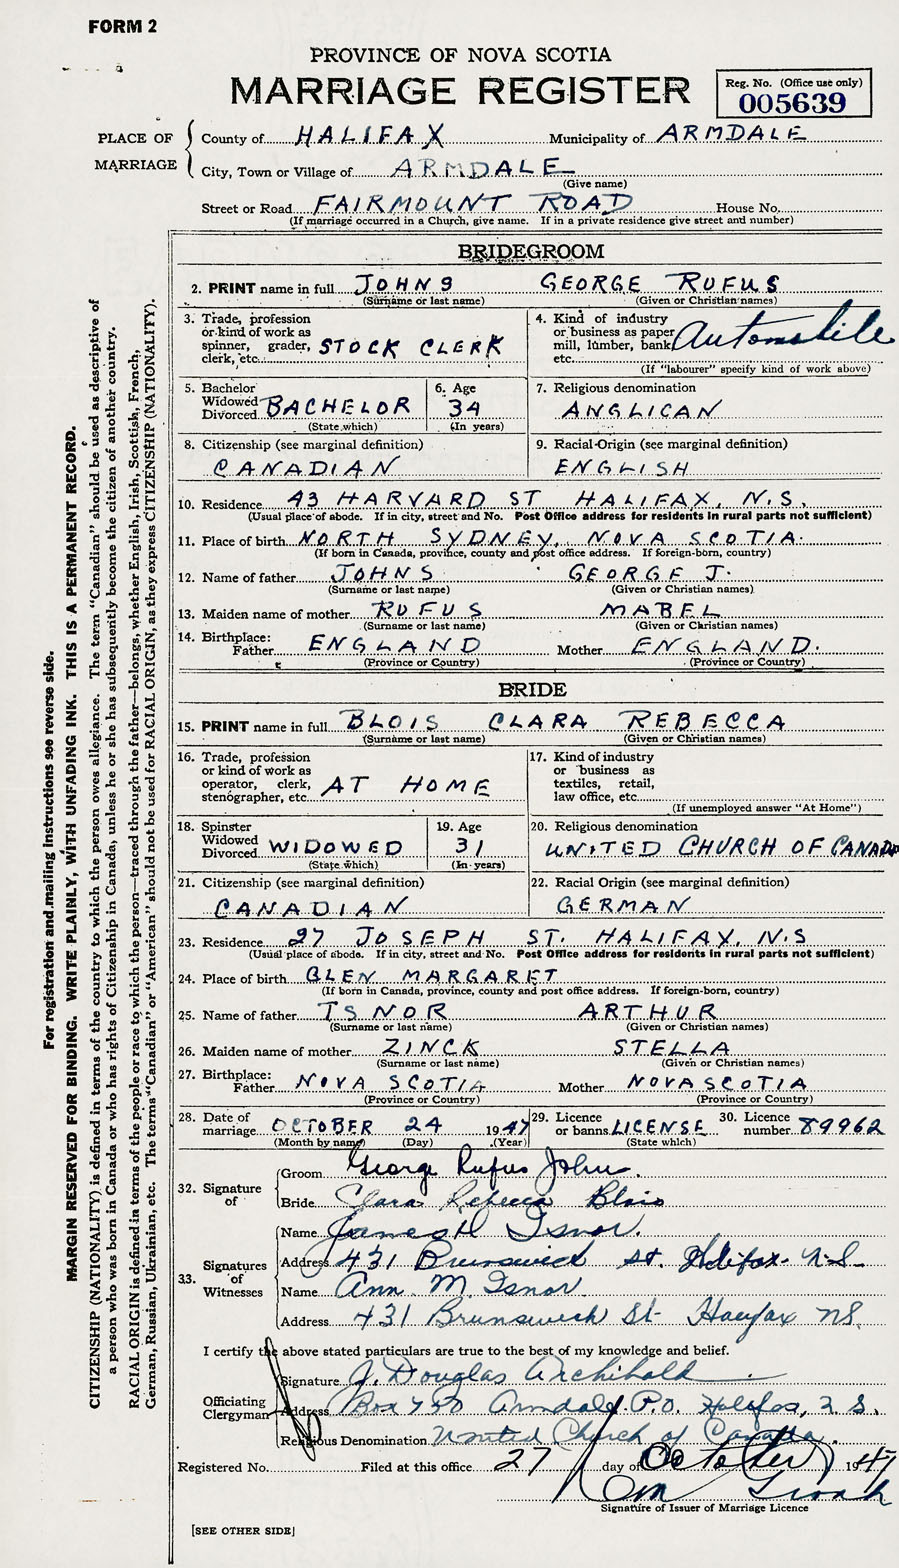 FORM 2
PROVINCE OF NOVA SCOTIA
MARRIAGE REGISTER
Reg. No. (Office use only)
005639
PLACE OF MARRIAGE
County of HALIFAX Municipality of ARMDALE
City, Town or Village of ARMDALE
(Give name)
Street or Road FAIRMOUNT ROAD House No.
(If marriage occured in a Church, give name. If in a private residence give street and number)
BRIDEGROOM
2. PRINT name in full JOHNS GEORGE RUFUS
(Surname or last name) (Given or Christian names)
3. Trade, profession
or kind of work as
spinner, grader,
clerk, etc. STOCK CLERK
4. Kind of industry
or business as paper
mill, lumber, bank
etc. Automobile
(If "labourer" specify kind of work above)
5. Bachelor
Widowed
Divorced BACHELOR
(State which)
6. Age
34
(In years)
7. Religious denomination
ANGLICAN
8. Citizenship (see marginal definition)
CANADIAN
9. Racial Origin (see marginal definition)
ENGLISH
10. Residence 43 HARVARD ST HALIFAX, N.S.
(Usual place of abode. If in city, street and No. Post Office address for residents in rural parts not sufficient)
11. Place of birth NORTH SYDNEY, NOVA SCOTIA.
(If born in Canada, province, county and post office address. If foreign-born, country)
12. Name of father JOHNS GEORGE J.
(Surname or last name) (Given or Christian names)
13. Maiden name of mother RUFUS MABEL
(Surname or last name) (Given or Christian names)
14. Birthplace:
Father ENGLAND Mother ENGLAND.
(Province or Country) (Province or Country)
BRIDE
15. PRINT name in full BLOIS CLARA REBECCA
(Surname or last name) (Given or Christian names)
16. Trade, profession
or kind of work as
operator, clerk,
stenographer, etc. AT HOME
17. Kind of industry
or business as
textiles, retail,
law office, etc.
(If unemployed answer "At Home")
18. Spinster
Widowed
Divorced WIDOWED
(State which)
19. Age
31
(In years)
20. Religious denomination
UNITED CHURCH OF CANADA
21. Citizenship (see marginal definition)
CANADIAN
22. Racial Origin (see marginal definition)
GERMAN
23. Residence 27 JOSEPH ST. HALIFAX, N.S
(Usual place of abode. If in city, street and No. Post Office address for residents in rural parts not sufficient)
24. Place of birth GLEN MARGARET
(If born in Canada, province, county and post office address. If foreign-born, country)
25. Name of father ISNOR ARTHUR
(Surname or last name) (Given or Christian names)
26. Maiden name of mother ZINCK STELLA
(Surname or last name) (Given or Christian names)
27. Birthplace:
Father NOVA SCOTIA Mother NOVA SCOTIA
(Province or Country) (Province or Country)
28. Date of
marriage OCTOBER 24 1947
(Month by name) (Day) (Year)
29. Licence
or banns LICENSE
(State which)
30. Licence
number 89962
32. Signature of
Groom George Rufus Johns.
Bride Clara Rebecca Blois
33. Signatures of Witnesses
Name James H Isnor.
Address 431 Brunswick St. Halifax N.S.
Name Ann. M. Isnor.
Address 431 Brunswick St- Halifax NS.
I certify the above stated particulars are true to the best of my knowledge and belief.
Officiating Clergyman
Signature J. Douglas Archibald
Address Box 750 Armdale P.O. Halifax, N.S.
Religious Denomination United Church of Canada.
Registered No. Filed at this office 27 day of October 1947
Signature of Issuer of Marriage Licence
[SEE OTHER SIDE]
For registration and mailing instructions see reverse side.
MARGIN RESERVED FOR BINDING. WRITE PLAINLY, WITH UNFADING INK. THIS IS A PERMANENT RECORD.
CITIZENSHIP (NATIONALITY) is defined in terms of the country to which the person owes allegiance. The term "Canadian" should be used as descriptive of
a person who was born in Canada or who has rights of Citizenship in Canada, unless he or she has subsequently become the citizen of another country.
RACIAL ORIGIN is defined in terms of the people or race to which the person—traced through the father—belongs, whether English, Irish, Scottish, French,
German, Russian, Ukrainian, etc. The terms "Canadian" or "American" should not be used for RACIAL ORIGIN, as they express CITIZENSHIP (NATIONALITY).